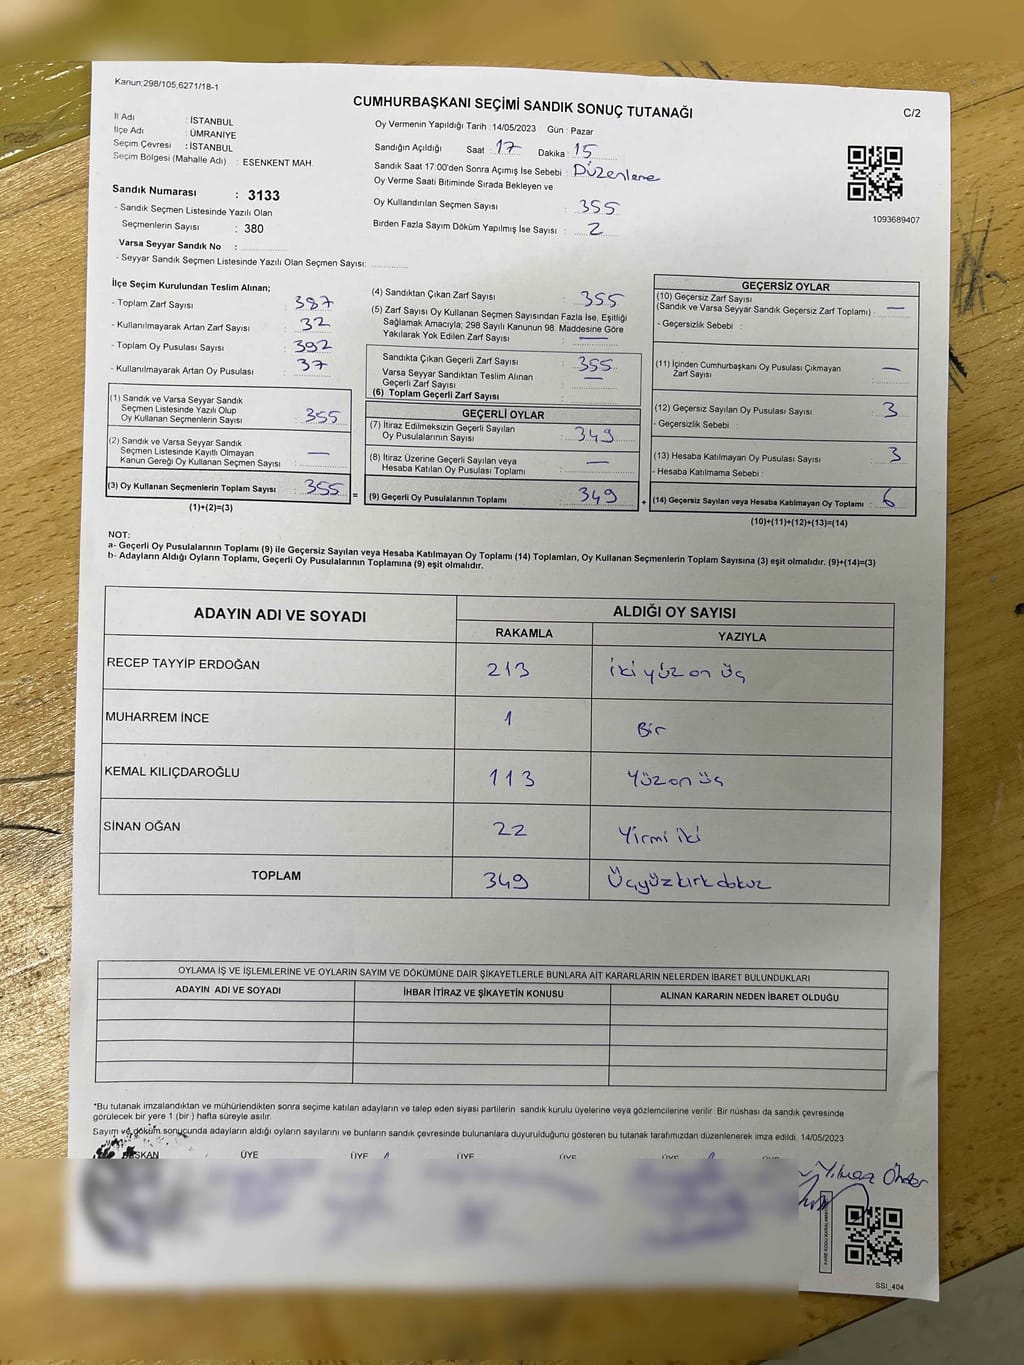 Kanun;298/105,6271/18-1
CUMHURBAŞKANI SEÇİMİ SANDIK SONUÇ TUTANAĞI
C/2
İl Adı : İSTANBUL
İlçe Adı : ÜMRANİYE
Seçim Çevresi : İSTANBUL
Seçim Bölgesi (Mahalle Adı) : ESENKENT MAH.
Sandık Numarası : 3133
- Sandık Seçmen Listesinde Yazılı Olan
Seçmenlerin Sayısı : 380
Varsa Seyyar Sandık No :
- Seyyar Sandık Seçmen Listesinde Yazılı Olan Seçmen Sayısı:
Oy Vermenin Yapıldığı Tarih :14/05/2023 Gün : Pazar
Sandığın Açıldığı Saat : 17 Dakika : 15
Sandık Saat 17:00'den Sonra Açımış İse Sebebi : Düzenleme
Oy Verme Saati Bitiminde Sırada Bekleyen ve
Oy Kullandırılan Seçmen Sayısı : 355
Birden Fazla Sayım Döküm Yapılmış İse Sayısı : 2
1093689407
İlçe Seçim Kurulundan Teslim Alınan;
- Toplam Zarf Sayısı : 387
- Kullanılmayarak Artan Zarf Sayısı : 32
- Toplam Oy Pusulası Sayısı : 392
- Kullanılmayarak Artan Oy Pusulası : 37
(1) Sandık ve Varsa Seyyar Sandık
Seçmen Listesinde Yazılı Olup
Oy Kullanan Seçmenlerin Sayısı : 355
(2) Sandık ve Varsa Seyyar Sandık
Seçmen Listesinde Kayıtlı Olmayan
Kanun Gereği Oy Kullanan Seçmen Sayısı : —
(3) Oy Kullanan Seçmenlerin Toplam Sayısı : 355
(1)+(2)=(3)
=
(4) Sandıktan Çıkan Zarf Sayısı : 355
(5) Zarf Sayısı Oy Kullanan Seçmen Sayısından Fazla İse, Eşitliği
Sağlamak Amacıyla; 298 Sayılı Kanunun 98. Maddesine Göre
Yakılarak Yok Edilen Zarf Sayısı : —
Sandıkta Çıkan Geçerli Zarf Sayısı : 355
Varsa Seyyar Sandıktan Teslim Alınan
Geçerli Zarf Sayısı : —
(6) Toplam Geçerli Zarf Sayısı :
GEÇERLİ OYLAR
(7) İtiraz Edilmeksizin Geçerli Sayılan
Oy Pusulalarının Sayısı : 349
(8) İtiraz Üzerine Geçerli Sayılan veya
Hesaba Katılan Oy Pusulası Toplamı : —
(9) Geçerli Oy Pusulalarının Toplamı : 349
+
GEÇERSİZ OYLAR
(10) Geçersiz Zarf Sayısı
(Sandık ve Varsa Seyyar Sandık Geçersiz Zarf Toplamı) : —
- Geçersizlik Sebebi :
(11) İçinden Cumhurbaşkanı Oy Pusulası Çıkmayan
Zarf Sayısı : —
(12) Geçersiz Sayılan Oy Pusulası Sayısı : 3
- Geçersizlik Sebebi :
(13) Hesaba Katılmayan Oy Pusulası Sayısı : 3
- Hesaba Katılmama Sebebi :
(14) Geçersiz Sayılan veya Hesaba Katılmayan Oy Toplamı : 6
(10)+(11)+(12)+(13)=(14)
NOT:
a- Geçerli Oy Pusulalarının Toplamı (9) ile Geçersiz Sayılan veya Hesaba Katılmayan Oy Toplamı (14) Toplamları, Oy Kullanan Seçmenlerin Toplam Sayısına (3) eşit olmalıdır. (9)+(14)=(3)
b- Adayların Aldığı Oyların Toplamı, Geçerli Oy Pusulalarının Toplamına (9) eşit olmalıdır.
ADAYIN ADI VE SOYADI
ALDIĞI OY SAYISI
RAKAMLA YAZIYLA
RECEP TAYYİP ERDOĞAN 213 iki yüz on üç
MUHARREM İNCE 1 Bir
KEMAL KILIÇDAROĞLU 113 Yüz on üç
SİNAN OĞAN 22 Yirmi iki
TOPLAM 349 Üçyüzkırkdokuz
OYLAMA İŞ VE İŞLEMLERİNE VE OYLARIN SAYIM VE DÖKÜMÜNE DAİR ŞİKAYETLERLE BUNLARA AİT KARARLARIN NELERDEN İBARET BULUNDUKLARI
ADAYIN ADI VE SOYADI İHBAR İTİRAZ VE ŞİKAYETİN KONUSU ALINAN KARARIN NEDEN İBARET OLDUĞU
*Bu tutanak imzalandıktan ve mühürlendikten sonra seçime katılan adayların ve talep eden siyasi partilerin sandık kurulu üyelerine veya gözlemcilerine verilir. Bir nüshası da sandık çevresinde
görülecek bir yere 1 (bir ) hafta süreyle asılır.
Sayım ve döküm sonucunda adayların aldığı oyların sayılarını ve bunların sandık çevresinde bulunanlara duyurulduğunu gösteren bu tutanak tarafımızdan düzenlenerek imza edildi. 14/05/2023
BAŞKAN ÜYE ÜYE ÜYE ÜYE ÜYE ÜYE
Yılmaz Önder
SSI_404